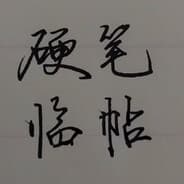 硬笔
临帖